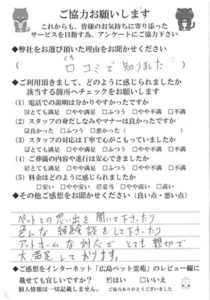 ご協力お願いします
これからも、皆様のお気持ちに寄り添った
サービスを目指す為、アンケートにご協力下さい
◆弊社をお選び頂いた理由をお聞かせください
( 口コミで知りました! )
◆ご利用頂きまして、どのように感じられましたか
該当する箇所へチェックをお願いします
(1) 電話での説明は分かりやすかったですか
☑とても満足 □やや満足 □ふつう □やや不満 □不満
(2) スタッフの身だしなみやマナーは良かったですか
☑良かった □ふつう □悪かった (
(3) スタッフの対応は丁寧で心がこもっていましたか
☑とても満足 □やや満足 □ふつう □やや不満 □不満
(4) ご葬儀の内容や進行は安心できましたか
☑とても満足 □やや満足 □ふつう □やや不満 □不満
(5) 料金はどのように感じられましたか
□安い □やや安い ☑妥当 □やや高い □高い
◆その他ご感想をお聞かせください (良い点・悪い点)
ペットとの思い出を聞いて下さったり
色んな経験談をして下さったり
アットホームな対応でとても
大満足しております。
◆ご感想をインターネット「広島ペット霊苑」のレビュー欄に
載せても宜しいですか? ☑はい □いいえ
個人情報は一切記載しません。 ご協力ありがとうございました